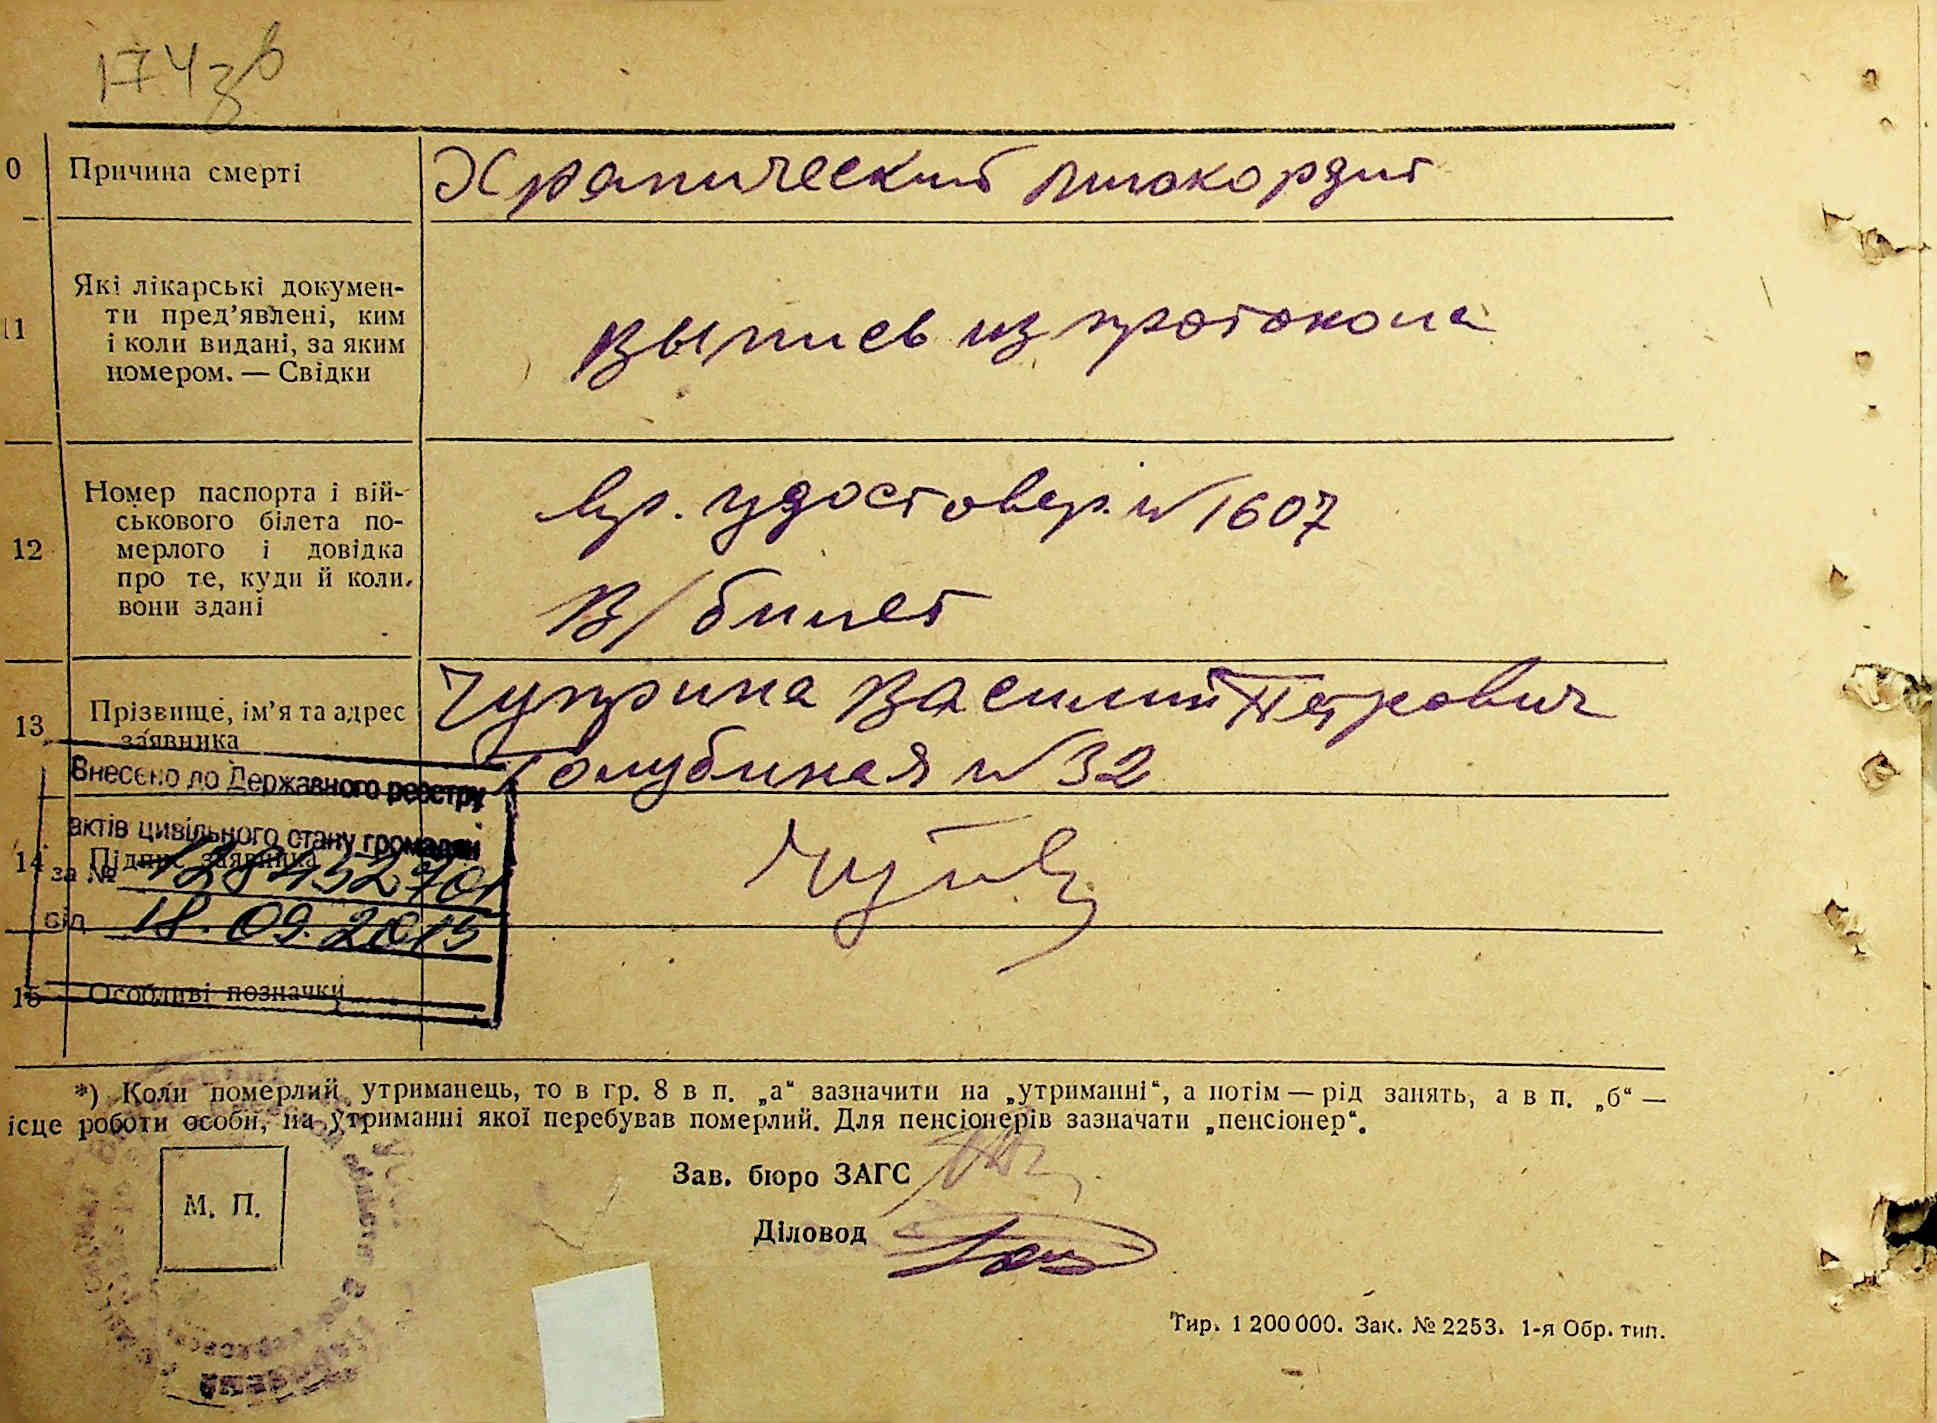 174 зв
0 Причина смерті
Хронический миокордит
11 Які лікарські докумен-
ти пред’явлені, ким
і коли видані, за яким
номером. — Свідки
выпись из протокола
12 Номер паспорта і вій-
ськового білета по-
мерлого і довідка
про те, куди й коли
вони здані
вр. удостовер. № 1607
В/билет
13 Прізвище, ім’я та адрес
заявника
Чуприна Василий Петрович
Голубиная № 32
Внесено до Державного реєстру
актів цивільного стану громадян
14 Підпис заявника
за №
від 18.09.2015
15 Особливі позначки
*) Коли померлий утриманець, то в гр. 8 в п. „а“ зазначити на „утриманні“, а потім — рід занять, а в п. „б“ —
ісце роботи особи, на утриманні якої перебував померлий. Для пенсіонерів зазначати „пенсіонер“.
М. П.
Зав. бюро ЗАГС
Діловод
Тир. 1 200 000. Зак. № 2253. 1-я Обр. тип.